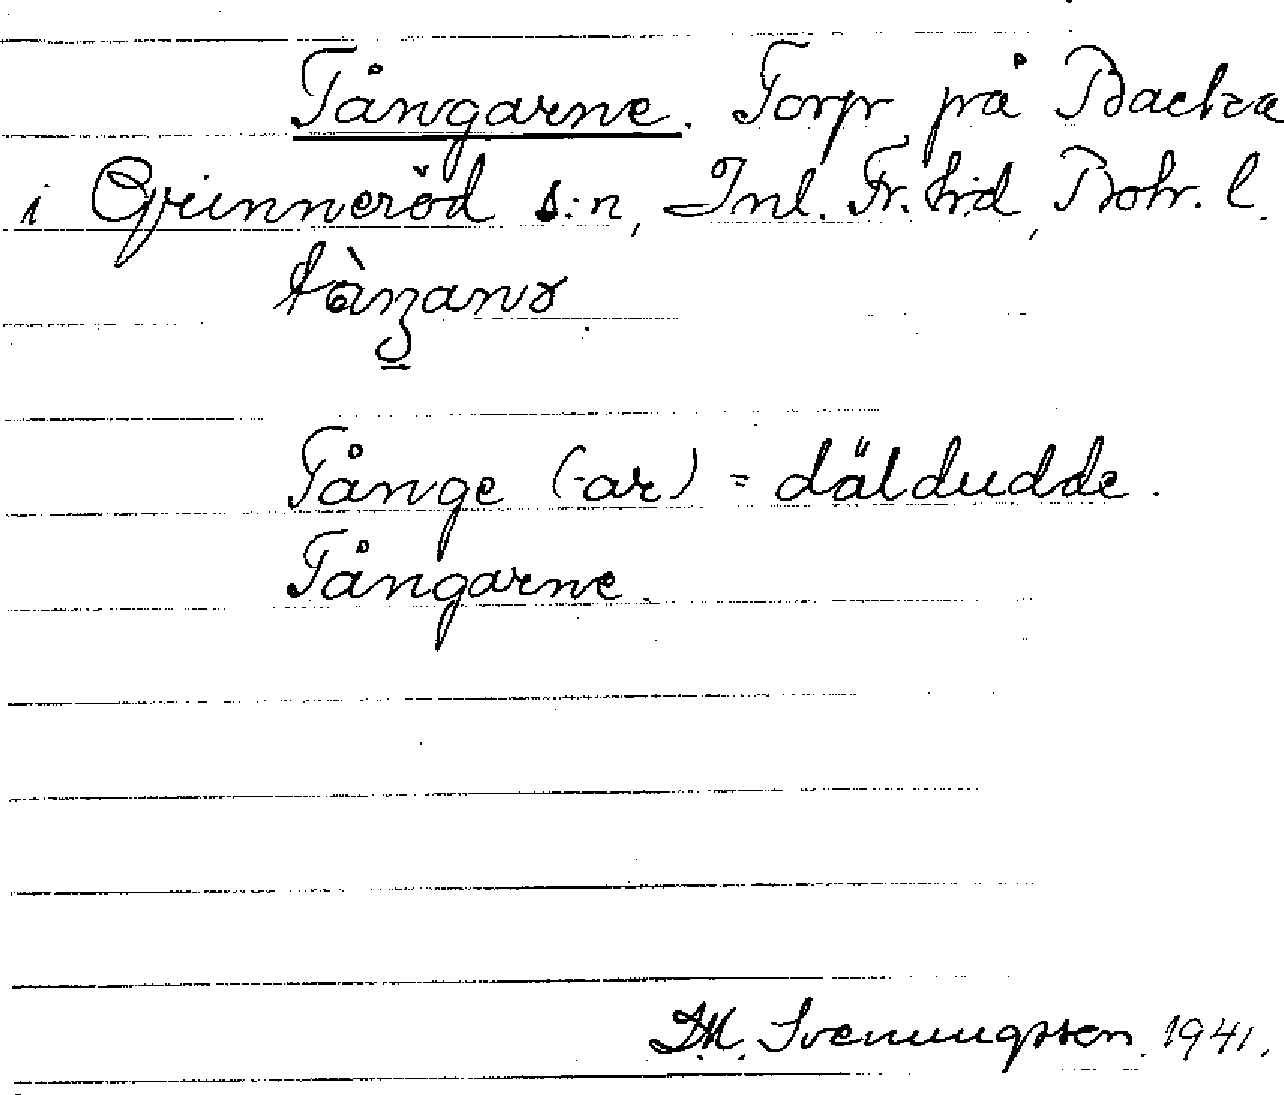 Tångarne. Torp på Backa
i Grinneröd s:n, Inl. Fr. hd, Boh. l.
Tånge (-ar) = däldudde.
Tångarne.
Svenungsson. 1941.